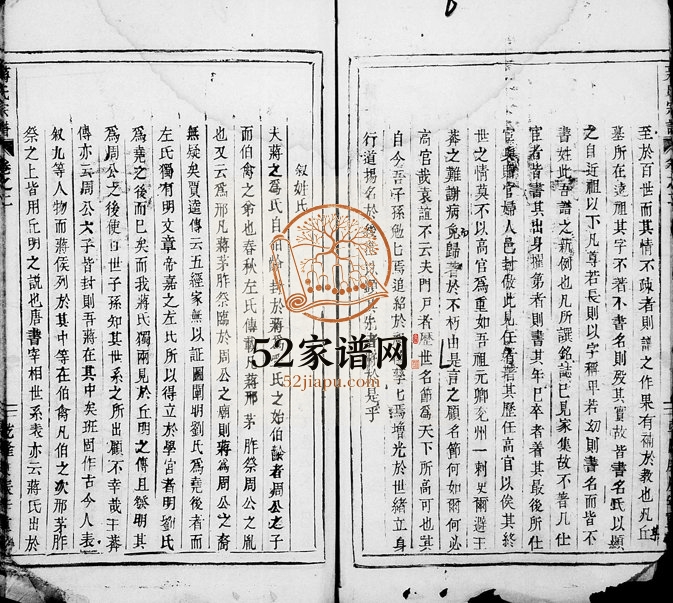 至於百世而其情不疎者則譜之作果有補於教也凡丘
墓所在遠祖其字不著不書名則歿其實故皆書名氏以顯
之自近祖以下凡尊若長則以字稱卑若幼則書名而皆不
書姓此吾譜之義例也凡所譔銘誌已見家集故不著凡仕
宦者皆書其出身擢第者則書其年已卒者著其最後所仕
官與贈官婦人邑封倣此見任者著其歷任高官以俟其終
世之情莫不以高官為重如吾祖元卿兗州一刺史爾避王
莽之難謝病免歸著於不朽由是言之顧名節何如爾何必
高官哉袁誼不云夫門戸者歷世名節為天下所高可也冀
自今吾子孫勉
行道揚名於
叙姓氏
夫蔣之為氏自伯齡封於蔣為氏之始伯齡者周公之子
而伯禽之弟也春秋左氏傳載凡蔣邢茅胙祭周公之胤
也又云為邢凡蔣茅胙祭臨於周公之廟則蔣為周公之裔
無疑矣賈逵傳云五經家無以証圖䜟明劉氏為堯後者而
左氏獨有明文章帝嘉之左氏所以得立於學官者明劉氏
為堯之後而已矣而我蔣氏獨兩見於丘明之傳且發明其
為周公之後使百世子孫知其世系之所出顧不幸哉王莽
傳亦云周公六子皆封則吾蔣在其中矣班固作古今人表
叙九等人物而蔣侯列於其中等在伯禽凡伯之次邢茅胙
祭之上皆用丘明之說也唐書宰相世系表亦云蔣氏出於
蔣氏宗譜
52家谱网
52jiapu.com